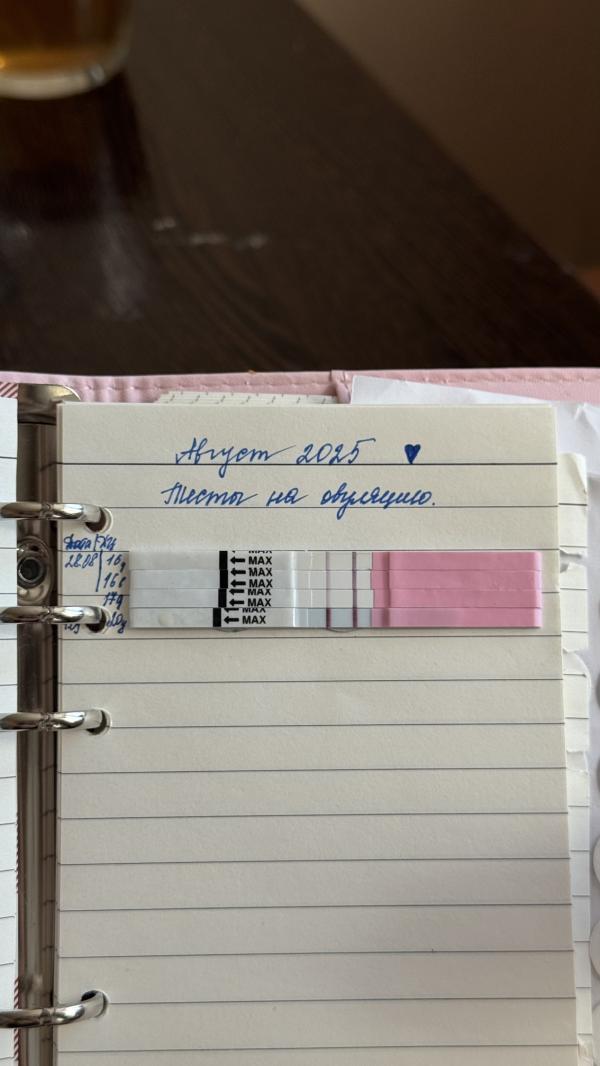 Август 2025 ♥
Тесты на овуляцию.
Дата ДЦ
28.08 16д
16в
17д
20у
MAX
MAX
MAX
MAX
MAX
MAX
MAX